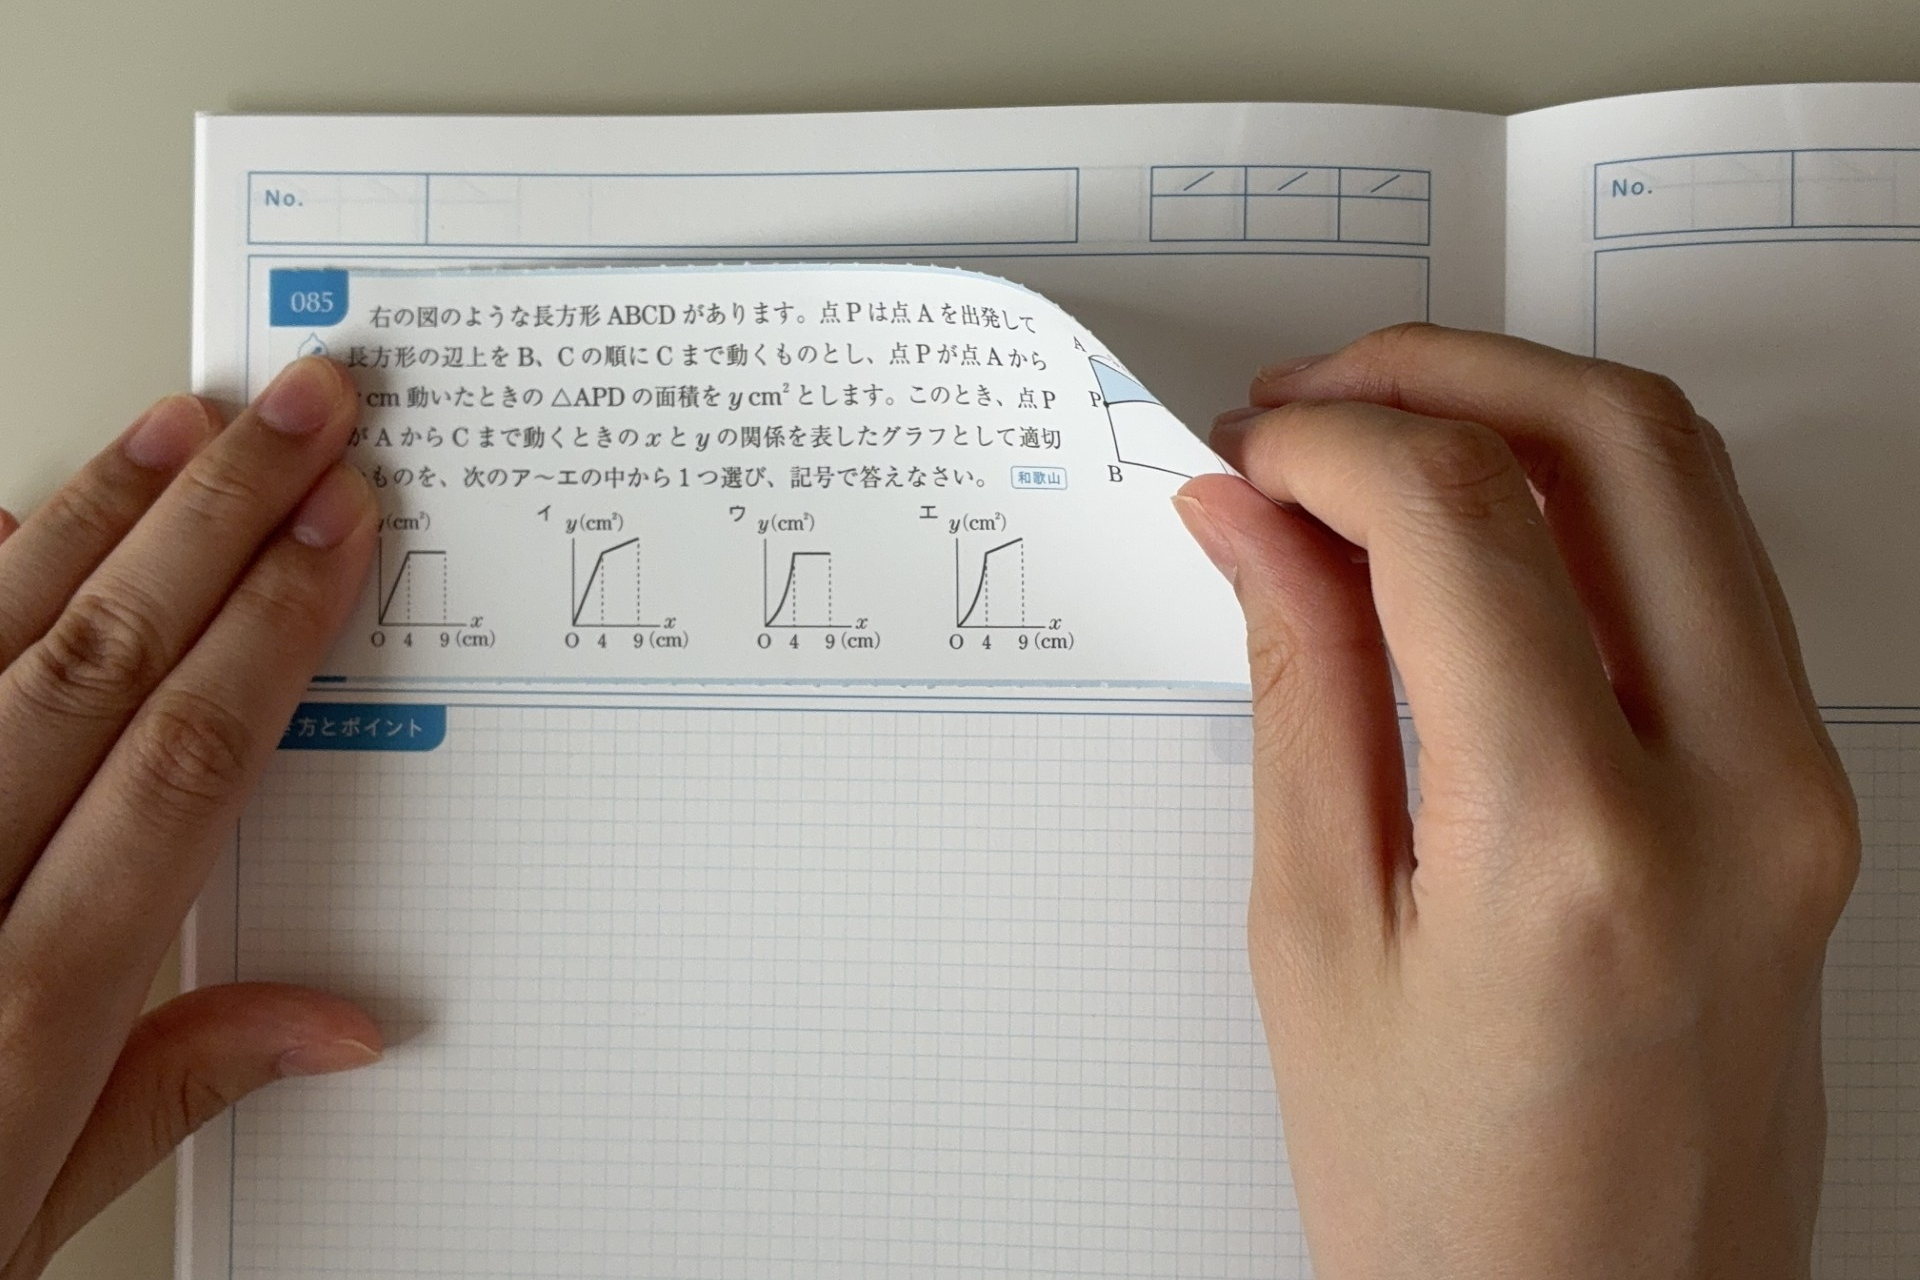 No.
No.
085
右の図のような長方形ABCDがあります。点Pは点Aを出発して
長方形の辺上をB、Cの順にCまで動くものとし、点Pが点Aから
cm動いたときの△APDの面積をy cm²とします。このとき、点P
がAからCまで動くときのxとyの関係を表したグラフとして適切
ものを、次のア〜エの中から1つ選び、記号で答えなさい。 和歌山
A
P
B
y(cm²)
x
O 4 9 (cm)
イ
y(cm²)
x
O 4 9 (cm)
ウ
y(cm²)
x
O 4 9 (cm)
エ
y(cm²)
x
O 4 9 (cm)
方とポイント